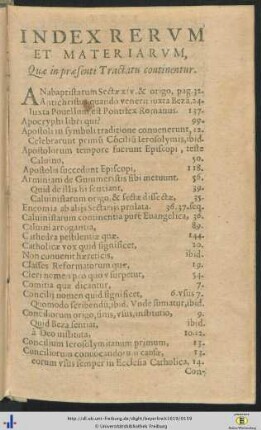 INDEX RERVM
ET MATERIARVM,
Quæ in præsenti Tractatu continentur.
ANabaptistarum Sectæ xiv. & origo, pag. 32.
Antichristus quando venerit iuxta Beza, 24.
Iuxta Pouellum, est Pontifex Romanus. 137.
Apocryphi libri qui? 99.
Apostoli in symboli traditione conuenerunt, 12.
Celebrarunt primū Cōciliū Ierosolymis, ibid.
Apostolorum tempore fuerunt Episcopi, teste
Caluino, 50.
Apostolis succedunt Episcopi, 118.
Arminiani de Gummeristis sibi metuunt. 56.
Quid de illis hi sentiant, 39.
Caluinistarum origo, & sectæ dissectæ, 35.
Encomia ab alijs Sectarijs prolata. 36.37. seqq.
Caluinistarum commentia pure Euangelica, 36.
Caluini arrogantia, 89.
Cathedra pestilentiæ quæ. 144.
Catholicæ vox quid significet, 20.
Non conuenit hæreticis, ibid.
Classes Reformatorum quæ, 19.
Cleri nomen pro quo vsurpetur, 54.
Comma quæ dicantur, 7.
Concilij nomen quid significet, 6. vsus 7.
Quomodo scribendū, ibid. Vnde sumatur, ibid.
Conciliorum origo, finis, vsus, institutio, 9.
Quid Beza sentiat, ibid.
à Deo instituta, 10.12.
Concilium Ierosolymitanum primum, 13.
Conciliorum conuocandorum causæ, 13.
eorum vsus semper in Ecclesia Catholica, 14.
Con-
© Universitätsbibliothek Freiburg